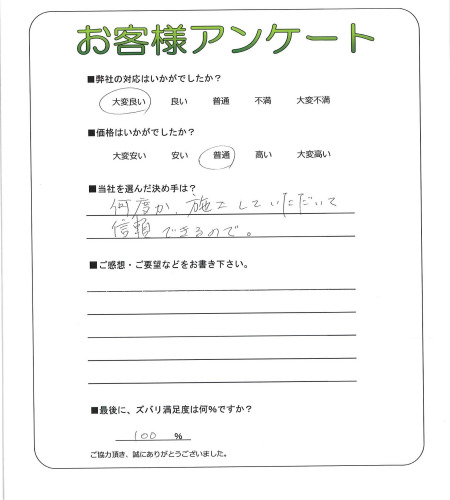 お客様アンケート
■弊社の対応はいかがでしたか？
大変良い 良い 普通 不満 大変不満
■価格はいかがでしたか？
大変安い 安い 普通 高い 大変高い
■当社を選んだ決め手は？
何度か、施工していただいて
信頼できるので。
■ご感想・ご要望などをお書き下さい。
■最後に、ズバリ満足度は何%ですか？
100 %
ご協力頂き、誠にありがとうございました。